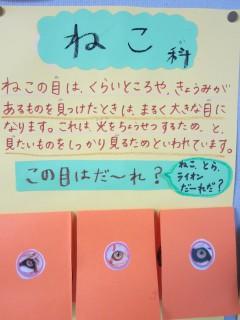 ねこ科
ねこの目は、くらいところや、きょうみが
あるものを見つけたときは、まるく大きな目に
なります。これは、光をちょうせつするため、と、
見たいものをしっかり見るためといわれています。
この目はだ〜れ?
ねこ、とら、
ライオン
だ〜れだ?